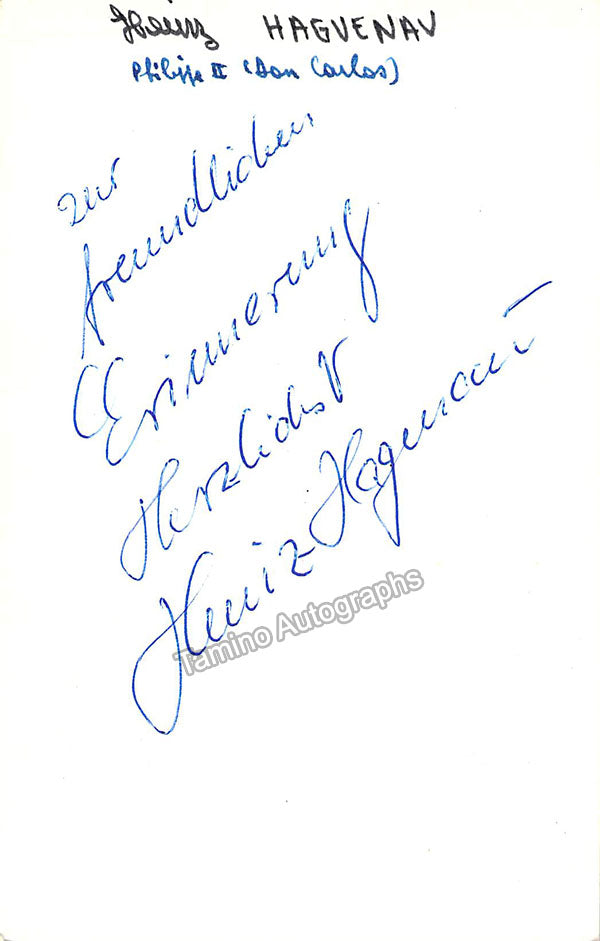 Heinz HAGUENAU
Philippe II (Don Carlos)
zur
freundlichen
Erinnerung
Herzlichst
Heinz Hagenau
Tamino Autographs